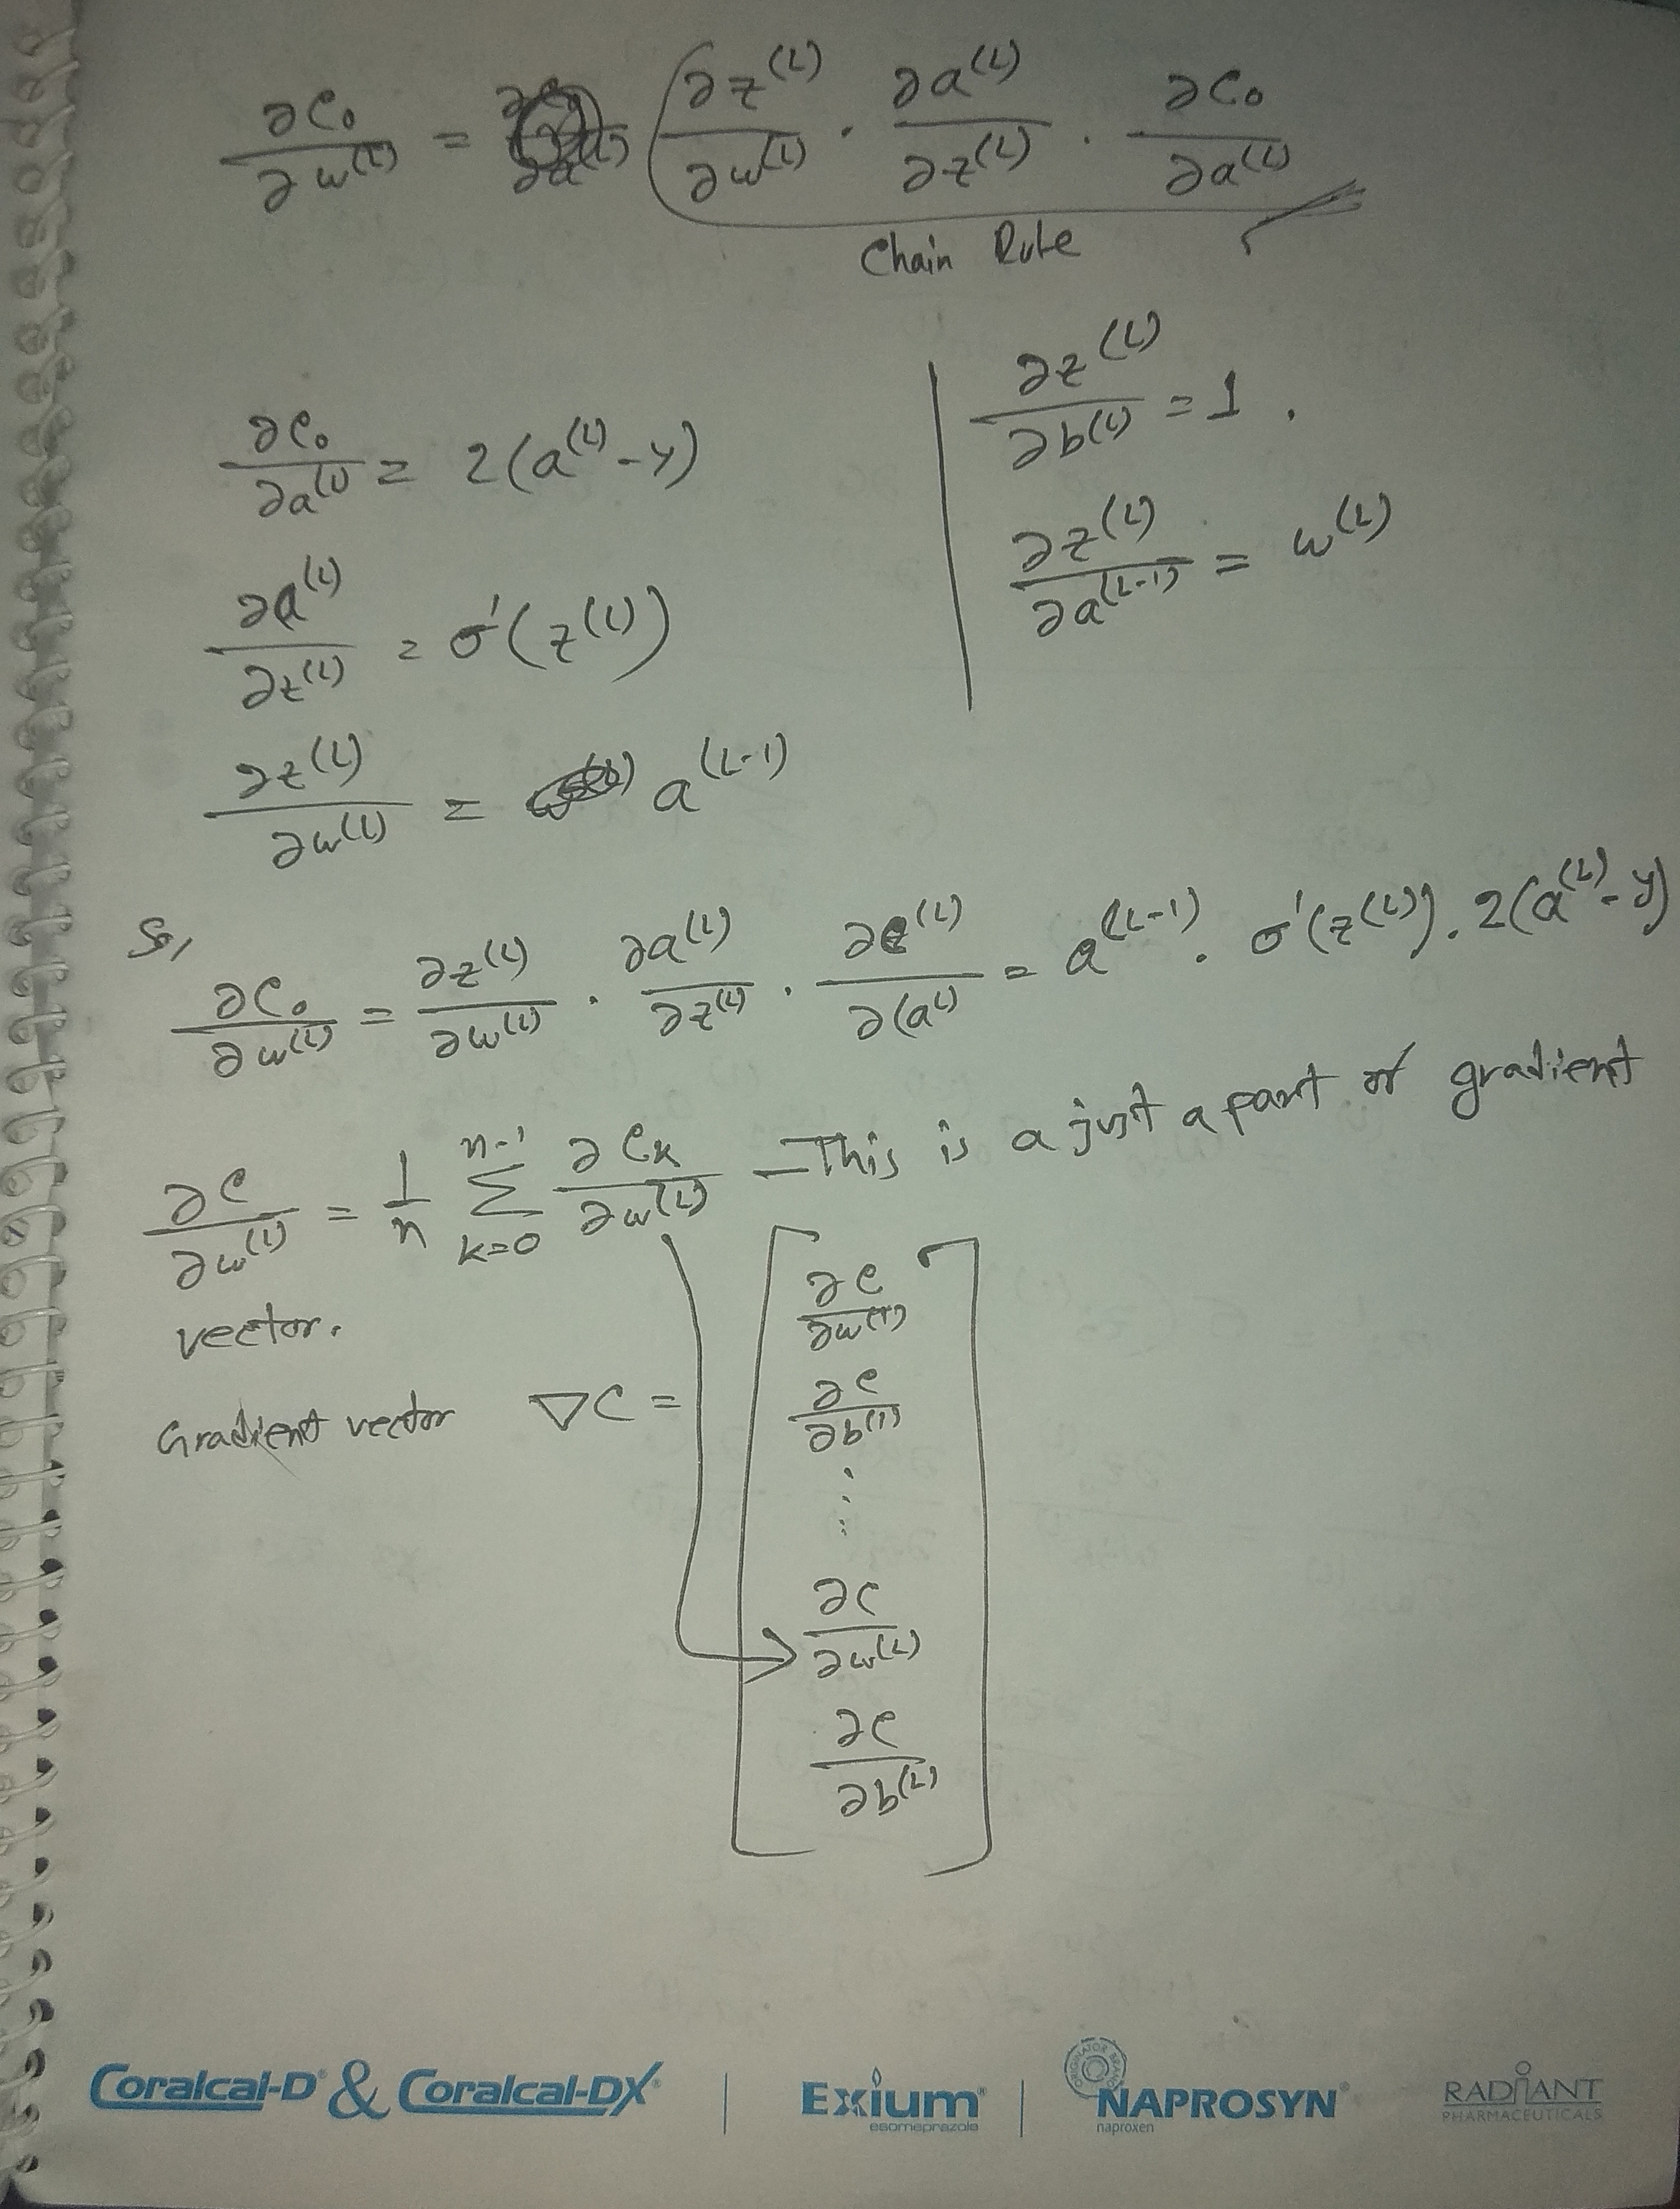 ∂C₀/∂w^(L) = ∂z^(L)/∂w^(L) · ∂a^(L)/∂z^(L) · ∂C₀/∂a^(L)
Chain Rule
∂C₀/∂a^(L) = 2(a^(L) - y)
∂a^(L)/∂z^(L) = σ'(z^(L))
∂z^(L)/∂w^(L) = a^(L-1)
∂z^(L)/∂b^(L) = 1 .
∂z^(L)/∂a^(L-1) = w^(L)
So,
∂C₀/∂w^(L) = ∂z^(L)/∂w^(L) · ∂a^(L)/∂z^(L) · ∂C^(L)/∂(a^(L) = a^(L-1) . σ'(z^(L)) . 2(a^(L) - y)
∂C/∂w^(L) = 1/n Σ_{k=0}^{n-1} ∂C_k/∂w^(L) — This is a just a part of gradient
vector.
Gradient vector ∇C =
∂C/∂w^(1)
∂C/∂b^(1)
⋮
∂C/∂w^(L)
∂C/∂b^(L)
Coralcal-D® & Coralcal-DX® | Exium® | NAPROSYN® RADIANT
esomeprazole naproxen PHARMACEUTICALS
ORIGINATOR BRAND